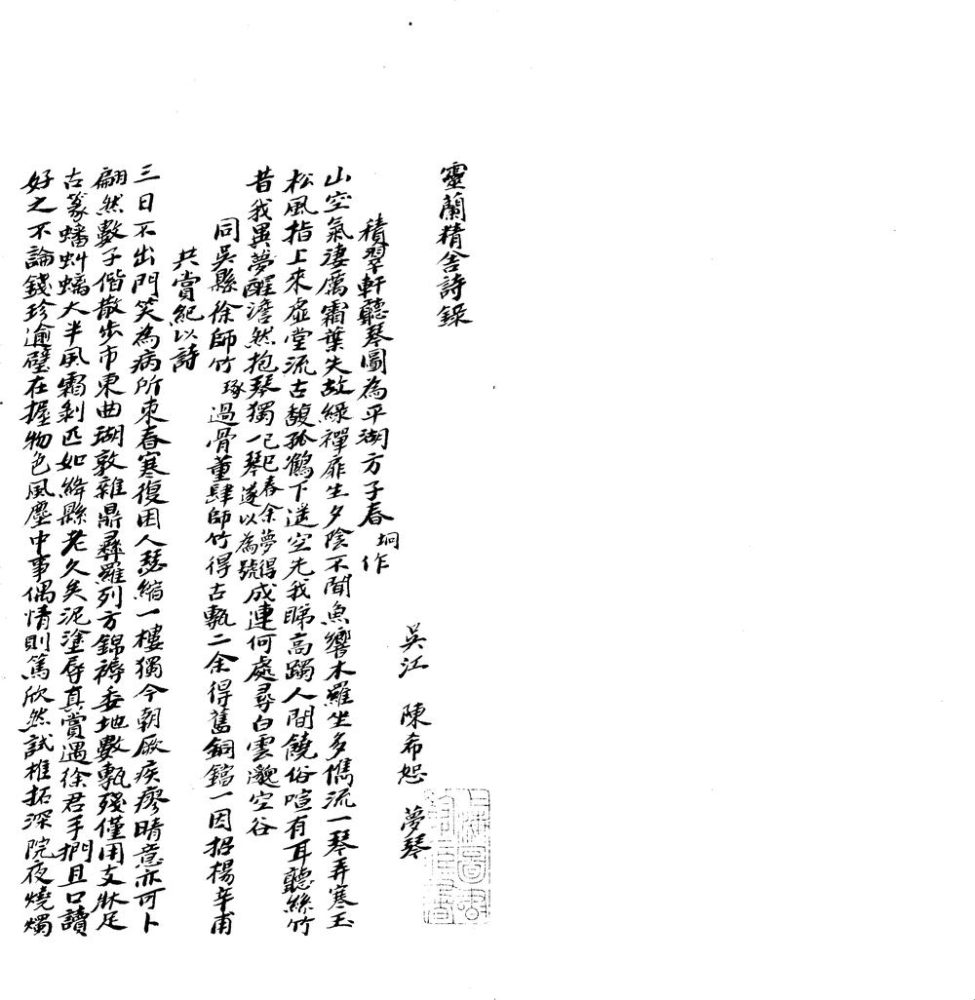 靈蘭精舍詩錄
吳江 陳希恕 夢琴
積翠軒聽琴圖為平湖方子春坰作
山空氣淒厲霜葉失故綠禪扉生夕陰不聞魚響木羅坐多儁流一琴弄寒玉
松風指上來虛堂流古馥孤鶴下遙空先我睇高躅人間饒俗喧有耳聽絲竹
昔我異夢醒澹然抱琴獨己巳春余夢得一琴遂以為號成連何處尋白雲邈空谷
同吳縣徐師竹琢過骨董肆師竹得古甎二余得舊銅鐺一因招楊辛甫
共賞紀以詩
三日不出門笑為病所束春寒復困人瑟縮一樓獨今朝厥疾瘳晴意亦可卜
翩然數子偕散步市東曲瑚敦雜鼎彝羅列方錦褥委地數甎殘僅用支牀足
古篆蟠虯螭大半風霜剝匹如絳縣老久矣泥塗辱真賞遇徐君手捫且口讀
好之不論錢珍逾璧在握物色風塵中事偶情則篤欣然試椎拓深院夜燒燭